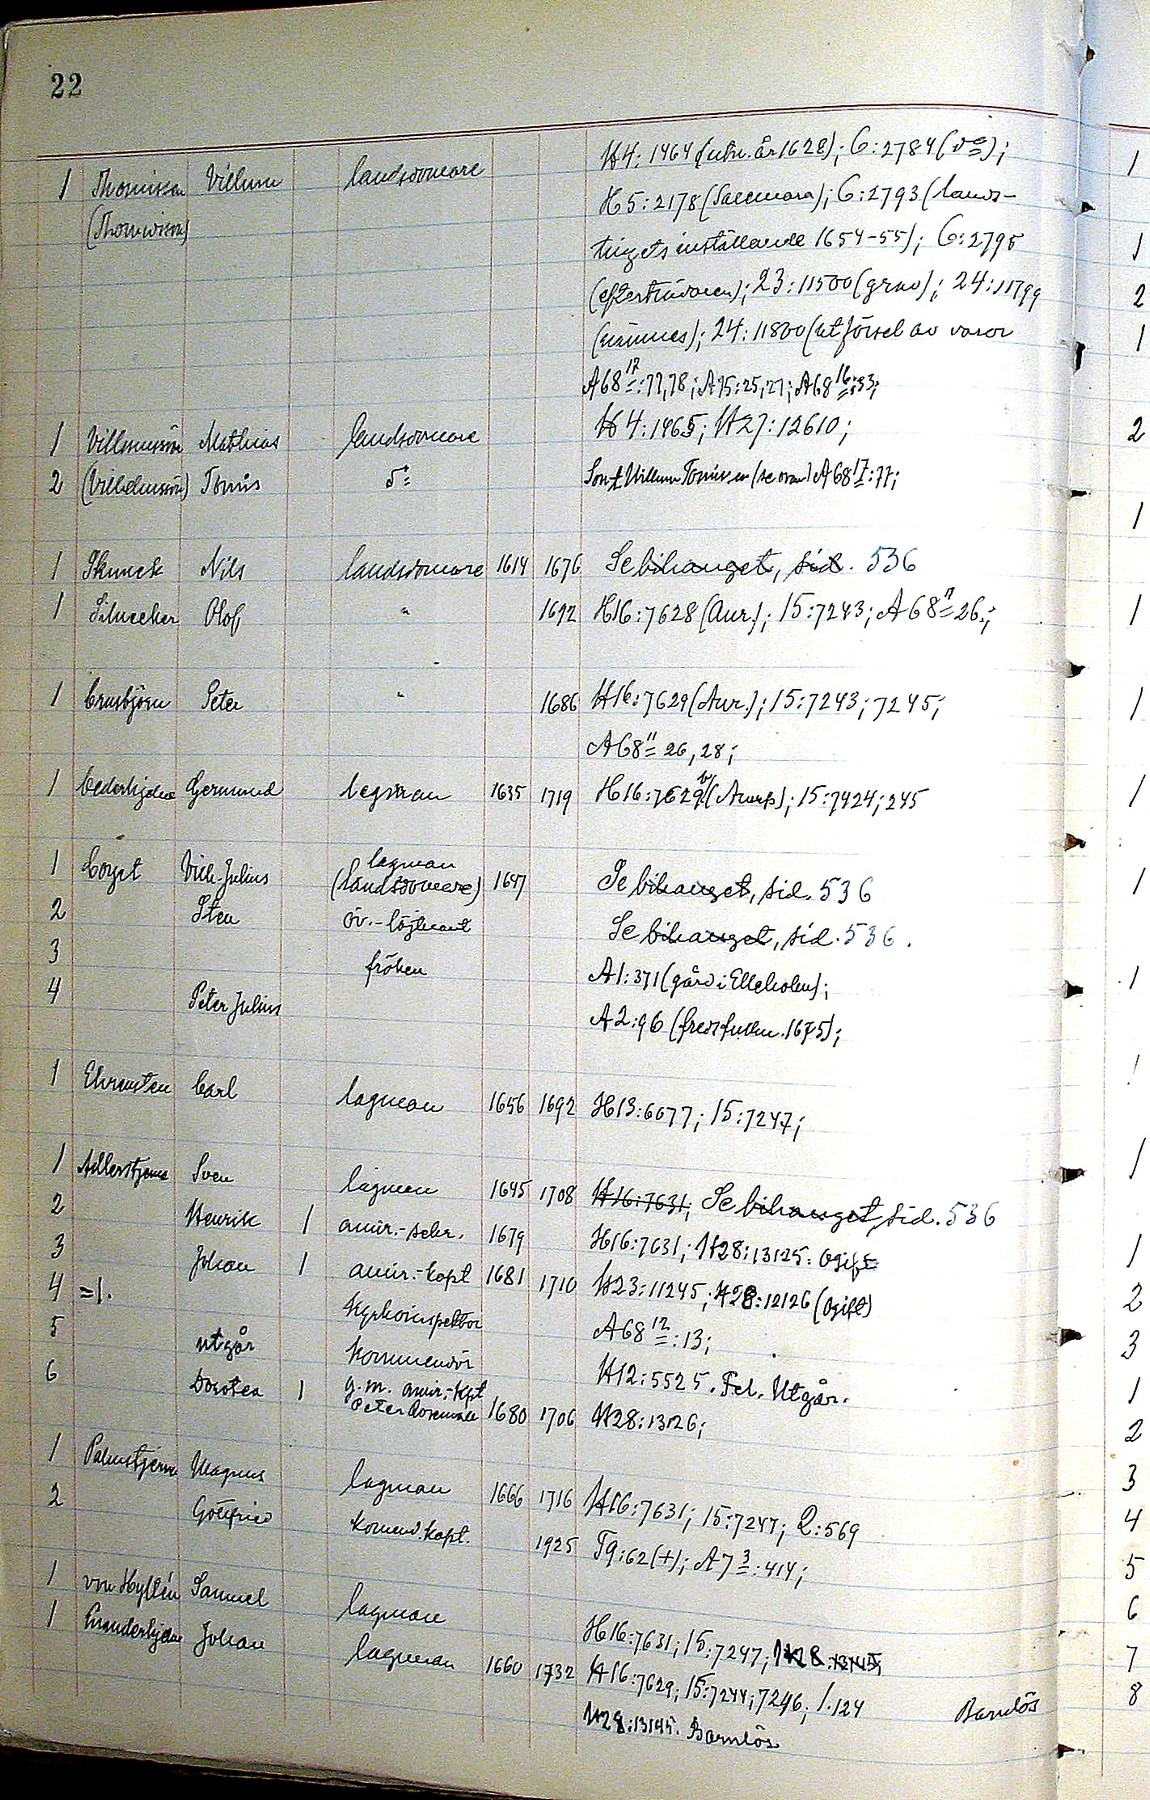 22
1 Thomissen Villum landsdomare H4:1464 (utn. år 1628); 6:2784 (d:o);
(Thomissen) H5:2178 (Salemara); 6:2793 (lands-
tingets inställande 1654-55); 6:2795
23:11500 (grav); 24:11799
(nämnes); 24:11800 (utförsel av varor
A68 17:77,78; A75:25,27; A68 16:33;
1 Villumssön Mathias landsdomare H4:1465; H27:12610;
2 (Villchumssön) Tomis d:o Son t. Villum Tomissen (se ovan) A68 17:77;
1 Skunck Nils landsdomare 1614 1676 Se bihanget, sid. 536
1 Silnecker Olof " 1692 H16:7628 (Aur.); 15:7243; A68 11 26;
1 Crusbjörn Peter " 1686 H16:7629 (Aur.); 15:7243; 7245;
A68 11 26, 28;
1 Cederhjelm Germund lagman 1635 1719 H16:7629 (Avursk); 15:7424; 245
1 Coyet Vilh. Julius lagman
(landsdomare) 1647 Se bihanget, sid. 536
2 Sten öv.-löjtnant Se bihanget, sid. 536.
3 fröken A1:371 (gård i Elleholm);
4 Peter Julius A2:96 (fredsfullm. 1675);
1 Ehrensten Carl lagman 1656 1692 H13:6077; 15:7247;
1 Adlerstjerna Sven lagman 1645 1708 H16:7631; Se bihanget, sid. 536
2 Henrik 1 amir.-sekr. 1679 H16:7631; H28:13125. Ogift
3 Johan 1 amir.-kapt 1681 1710 H23:11245; H28:12126 (Ogift)
4 =1. Kyrkoinspektor A68 12:13;
5 utgår kommendör H12:5525. Fel. Utgår.
6 Dorotea 1 g.m. amir.-kpt
Peter Rosenvall 1680 1706 H28:13126;
1 Palmstjerna Magnus lagman 1666 1716 H16:7631; 15:7247; 2:569
2 Gottfried komend.kapt. 1925 T9:62 (+); A7 3:414;
1 von Hyltén Samuel lagman H16:7631; 15:7247; H28:13145;
1 Johan lagman 1660 1732 H16:7629; 15:7244; 7246; 1.124 Barnlös
H28:13145. Barnlös
1
1
2
1
2
1
1
1
1
1
1
1
1
1
2
3
1
2
3
4
5
6
7
8